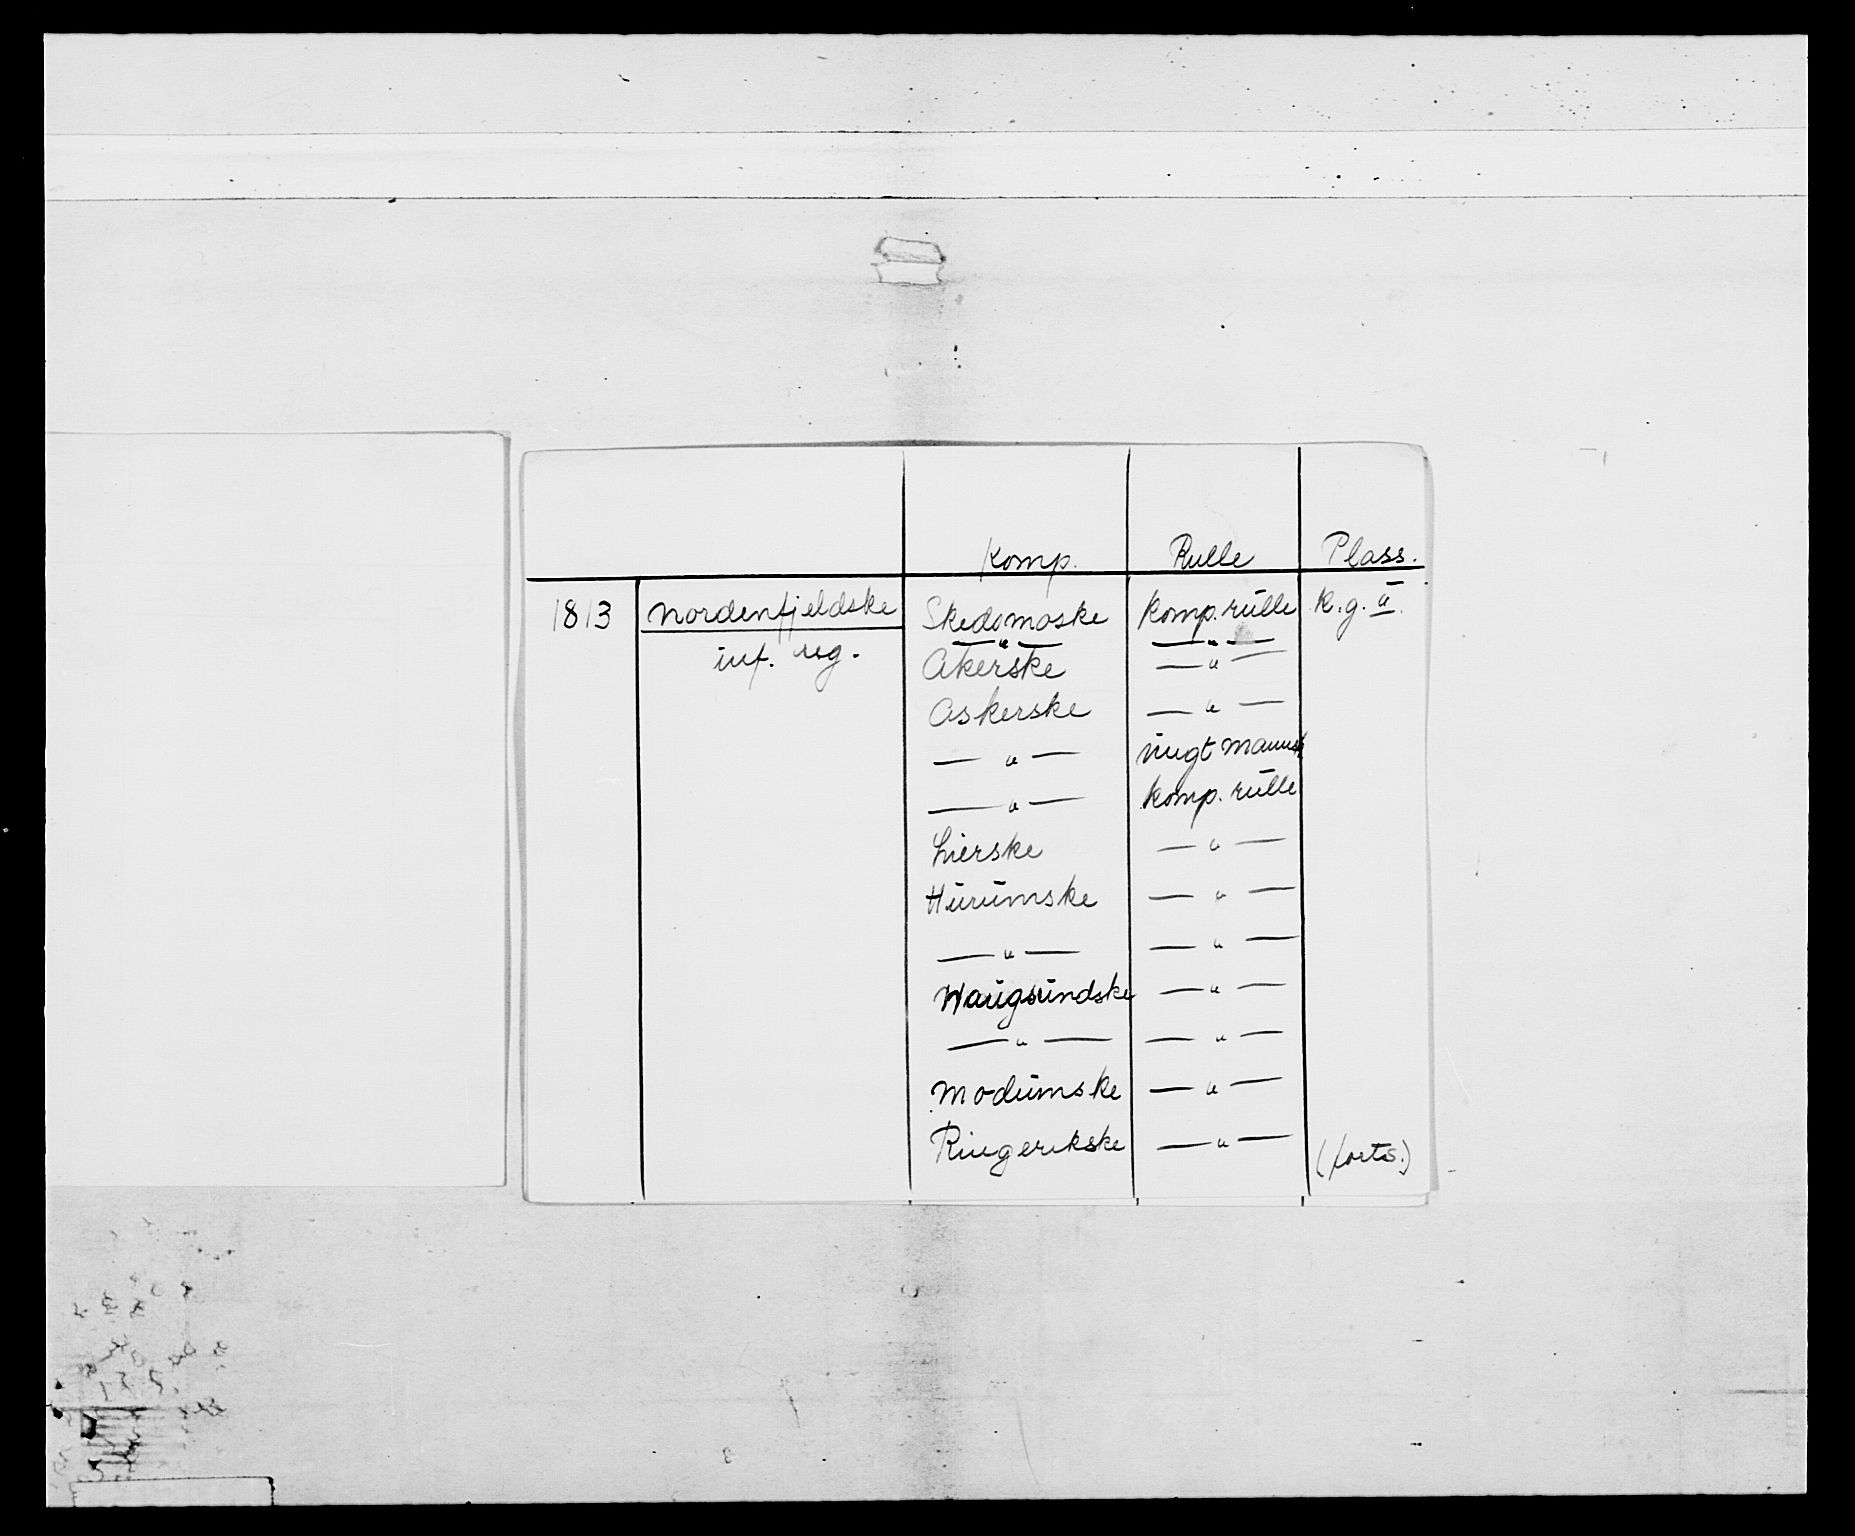 Komp. Rulle Plass.
1813 Nordenfjeldske Skedsmoske Komp. rulle K. g. ū.
inf. reg. — " — — " —
Akerske — " —
Askerske — " —
— " — ungt mannsk
— " — Komp. rulle
Lierske — " —
Hurumske — " —
— " — — " —
Haugsundske — " —
— " — — " —
Modumske — " —
Ringerikske — " — (forts.)